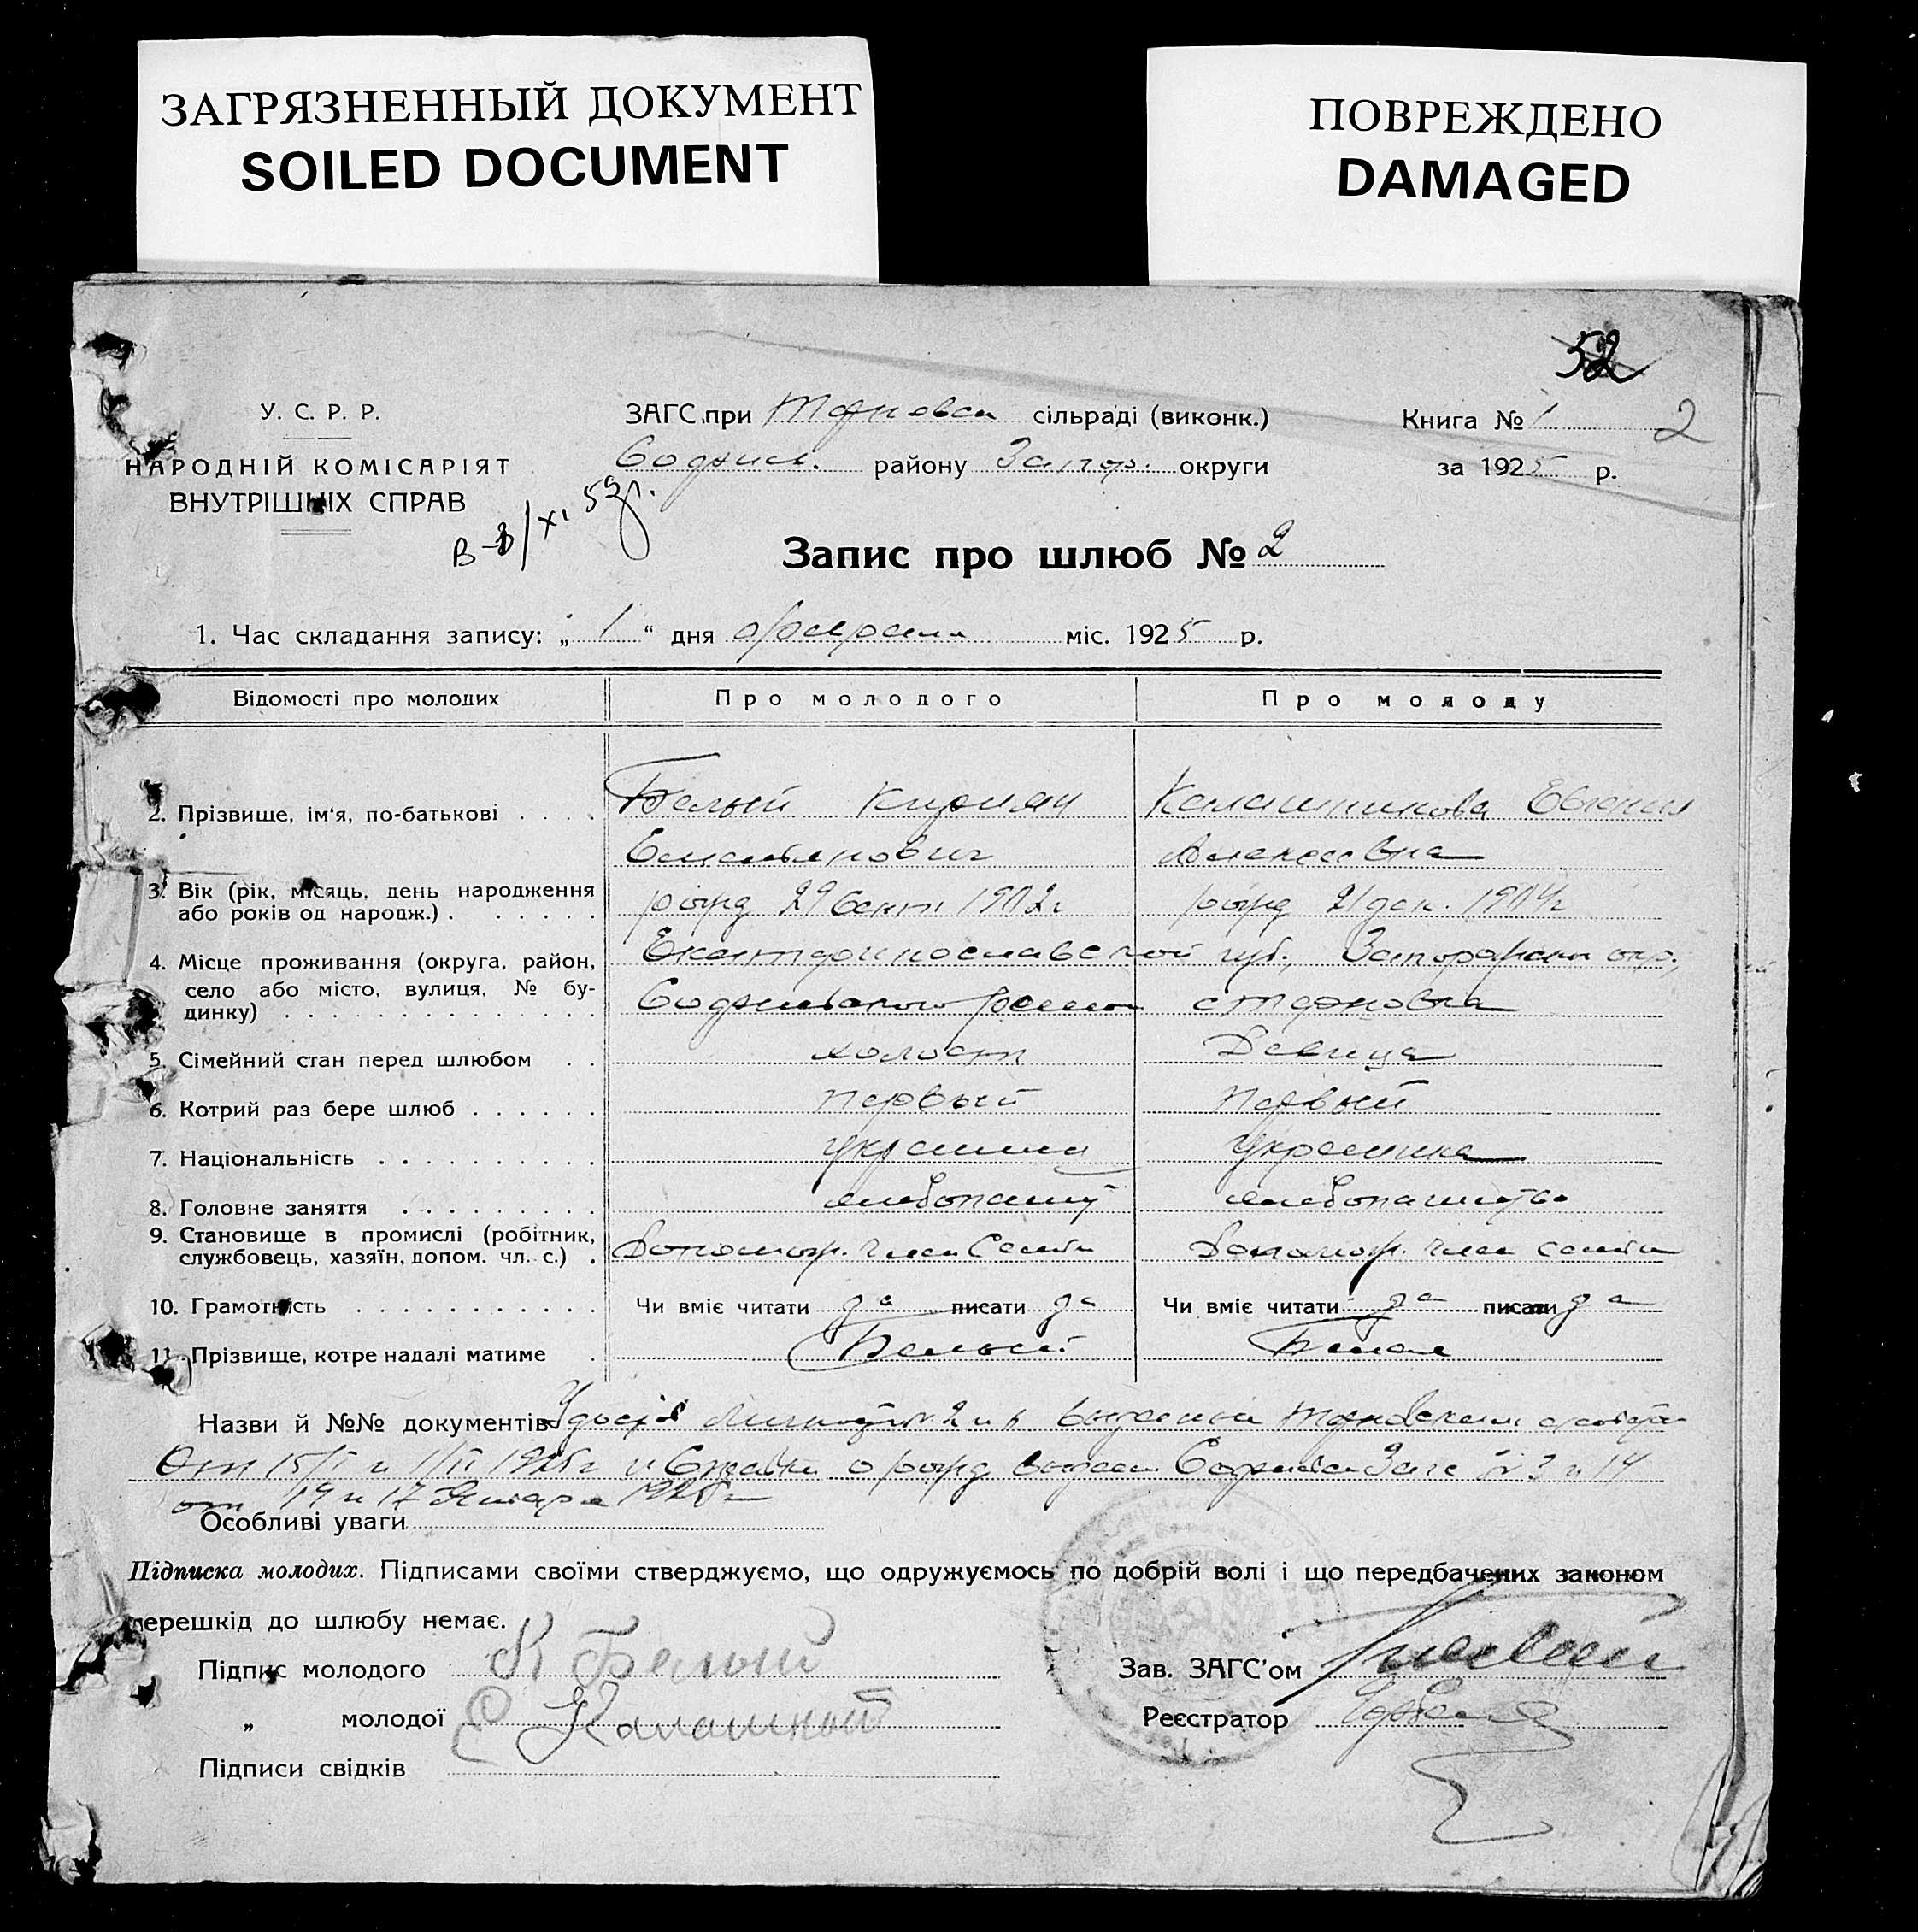 ЗАГРЯЗНЕННЫЙ ДОКУМЕНТ
SOILED DOCUMENT
ПОВРЕЖДЕНО
DAMAGED
52
У. С. Р. Р.
НАРОДНІЙ КОМІСАРІЯТ
ВНУТРІШНІХ СПРАВ
ЗАГС при сільраді (виконк.)
району Запор. округи
Книга № 1
2
за 1925 р.
Запис про шлюб № 2
1. Час складання запису: „ 1 “ дня февраля міс. 1925 р.
Відомості про молодих Про молодого Про молоду
2. Прізвище, ім'я, по-батькові . . . . Белый Калашникова Евгения
Емельянович Алексеевна
3. Вік (рік, місяць, день народження
або років од народж.) . . . . . . рожд 29 сент 1902 г рожд 21 дек. 1904 г
4. Місце проживання (округа, район, Екатеринославской губ., Запорожской окр.,
село або місто, вулиця, № бу-
динку) . . . . . . . . . . . . . . района с Терновка
5. Сімейний стан перед шлюбом . . холост Девица
6. Котрий раз бере шлюб . . . . . . первый первый
7. Національність . . . . . . . . . . украинец украинка
8. Головне заняття . . . . . . . . . хлебопашество
9. Становище в промислі (робітник,
службовець, хазяїн, допом. чл. с.) . член семьи член семьи
10. Грамотність . . . . . . . . . . . . Чи вміє читати да писати да Чи вміє читати да писати да
11. Прізвище, котре надалі матиме . Белый Белая
Назви й №№ документів
От 15/I и 1/II 1925 г и о рожд № 2 и 14
от 14 и 17 Января 1925 г
Особливі уваги
Підписка молодих. Підписами своїми стверджуємо, що одружуємось по добрій волі і що передбачених законом
перешкід до шлюбу немає.
Підпис молодого К Белый
Зав. ЗАГС'ом
„ молодої Е
Реєстратор
Підписи свідків